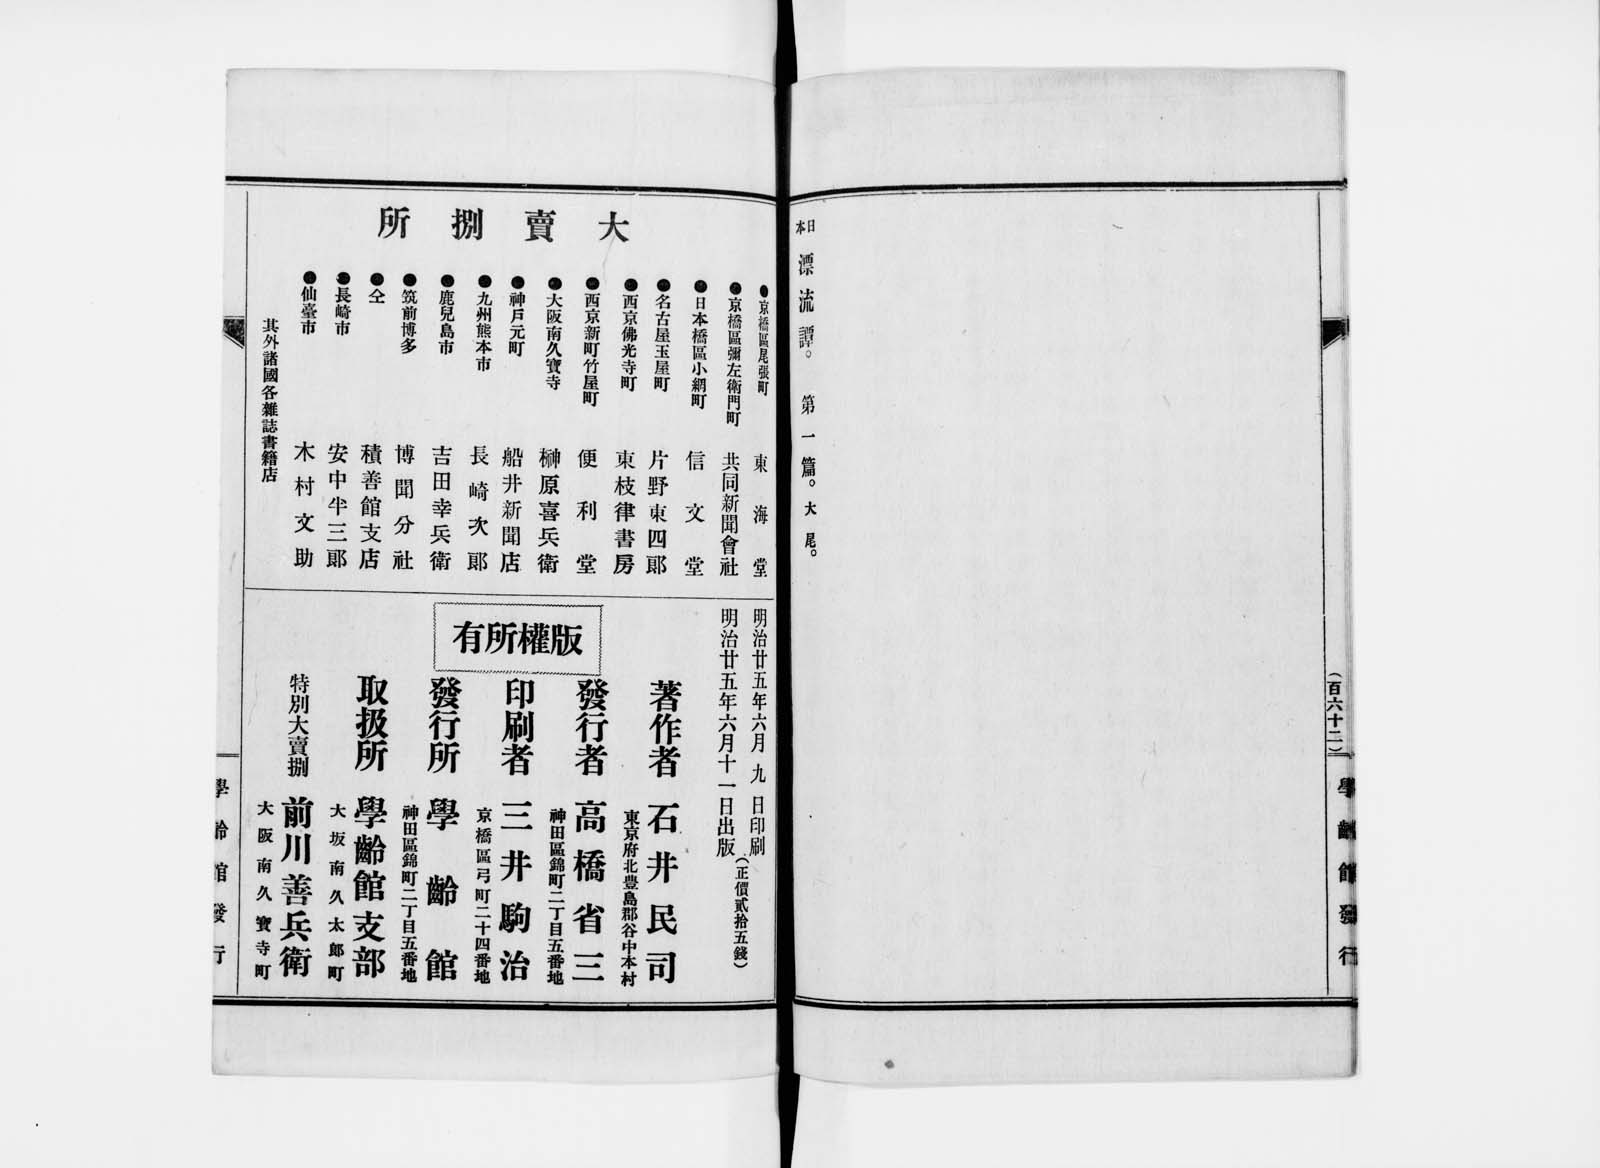 （百六十二）
學齡館發行
日本 漂流譚。 第一篇。大尾。
大賣捌所
●京橋區尾張町 東海堂
●京橋區彌左衞門町 共同新聞會社
●日本橋區小網町 信文堂
●名古屋玉屋町 片野東四郎
●西京佛光寺町 東枝律書房
●西京新町竹屋町 便利堂
●大阪南久寶寺 榊原喜兵衞
●神戸元町 船井新聞店
●九州熊本市 長崎次郎
●鹿兒島市 吉田幸兵衞
●筑前博多 博聞分社
●仝 積善館支店
●長崎市 安中半三郎
●仙臺市 木村文助
其外諸國各雜誌書籍店
明治廿五年六月九日印刷
明治廿五年六月十一日出版
（正價貳拾五錢）
版權所有
著作者 石井民司
東京府北豊島郡谷中本村
發行者 高橋省三
神田區錦町二丁目五番地
印刷者 三井駒治
京橋區弓町二十四番地
發行所 學齡館
神田區錦町二丁目五番地
取扱所 學齡館支部
大坂南久太郎町
特別大賣捌 前川善兵衞
大阪南久寶寺町
學齡館發行